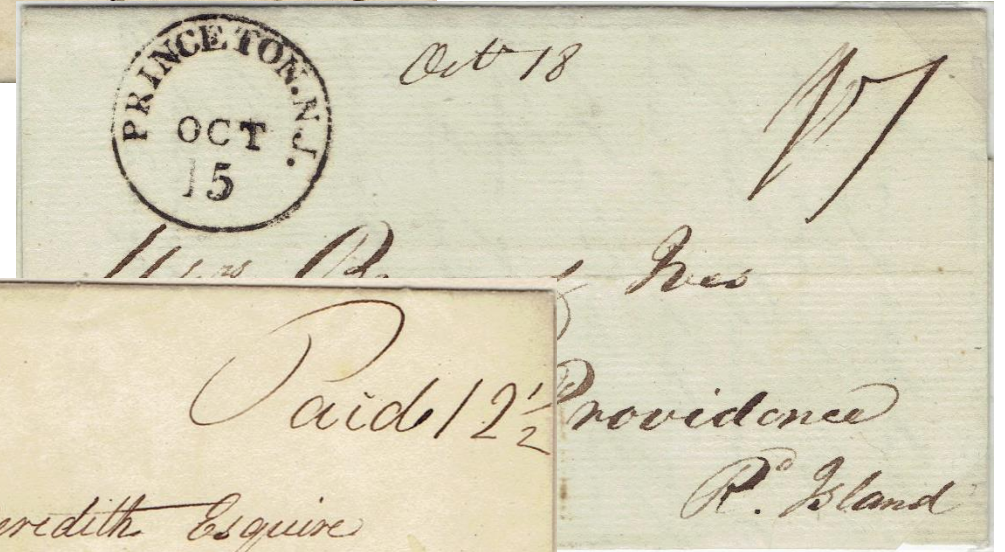 PRINCETON. N.J.
OCT
15
Oct 18
17
Mess
& Ives
Providence
R. Island
Paid 12 1/2
eredith Esquire